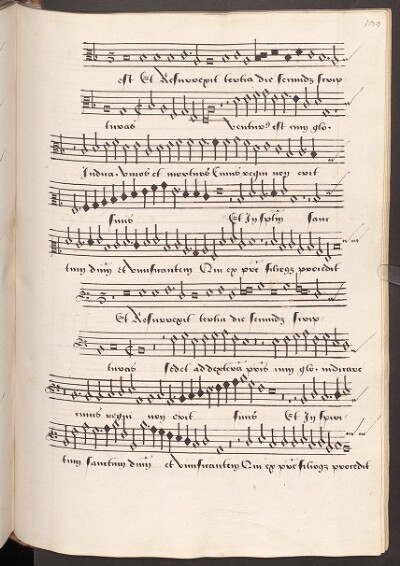 est Et Resurrexit tertia die secundū scrip
turas venturꝰ est cum glo.
Judica. vivos et mortuos Cuius regni non erit
finis Et In spm sanc
tum dnm et vivificantem Qui ex pre filioqȝ procedit
Et Resurrexit tertia die secundū scrip
turas sedet ad dexterā pris cum glo. iudicare
cuius regni non erit finis Et In spiri
tum sanctum dnm et vivificantem Qui ex pre filioqȝ procedit